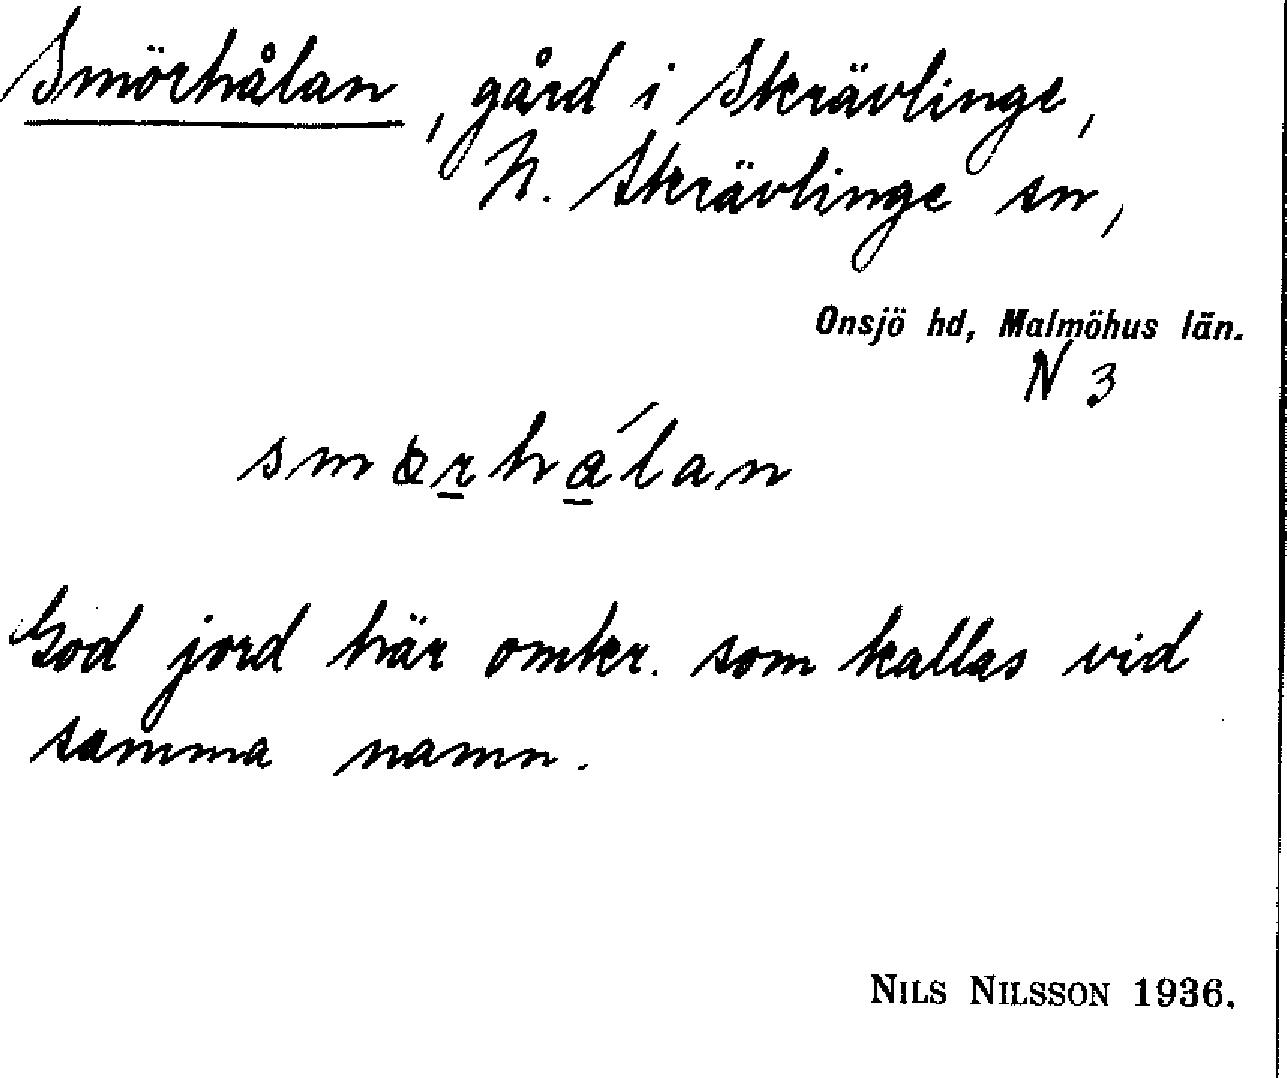 Smörhålan, gård i Skrävlinge,
N. Skrävlinge sn,
Onsjö hd, Malmöhus län.
N 3
God jord här omkr. som kallas vid
samma namn.
NILS NILSSON 1936.